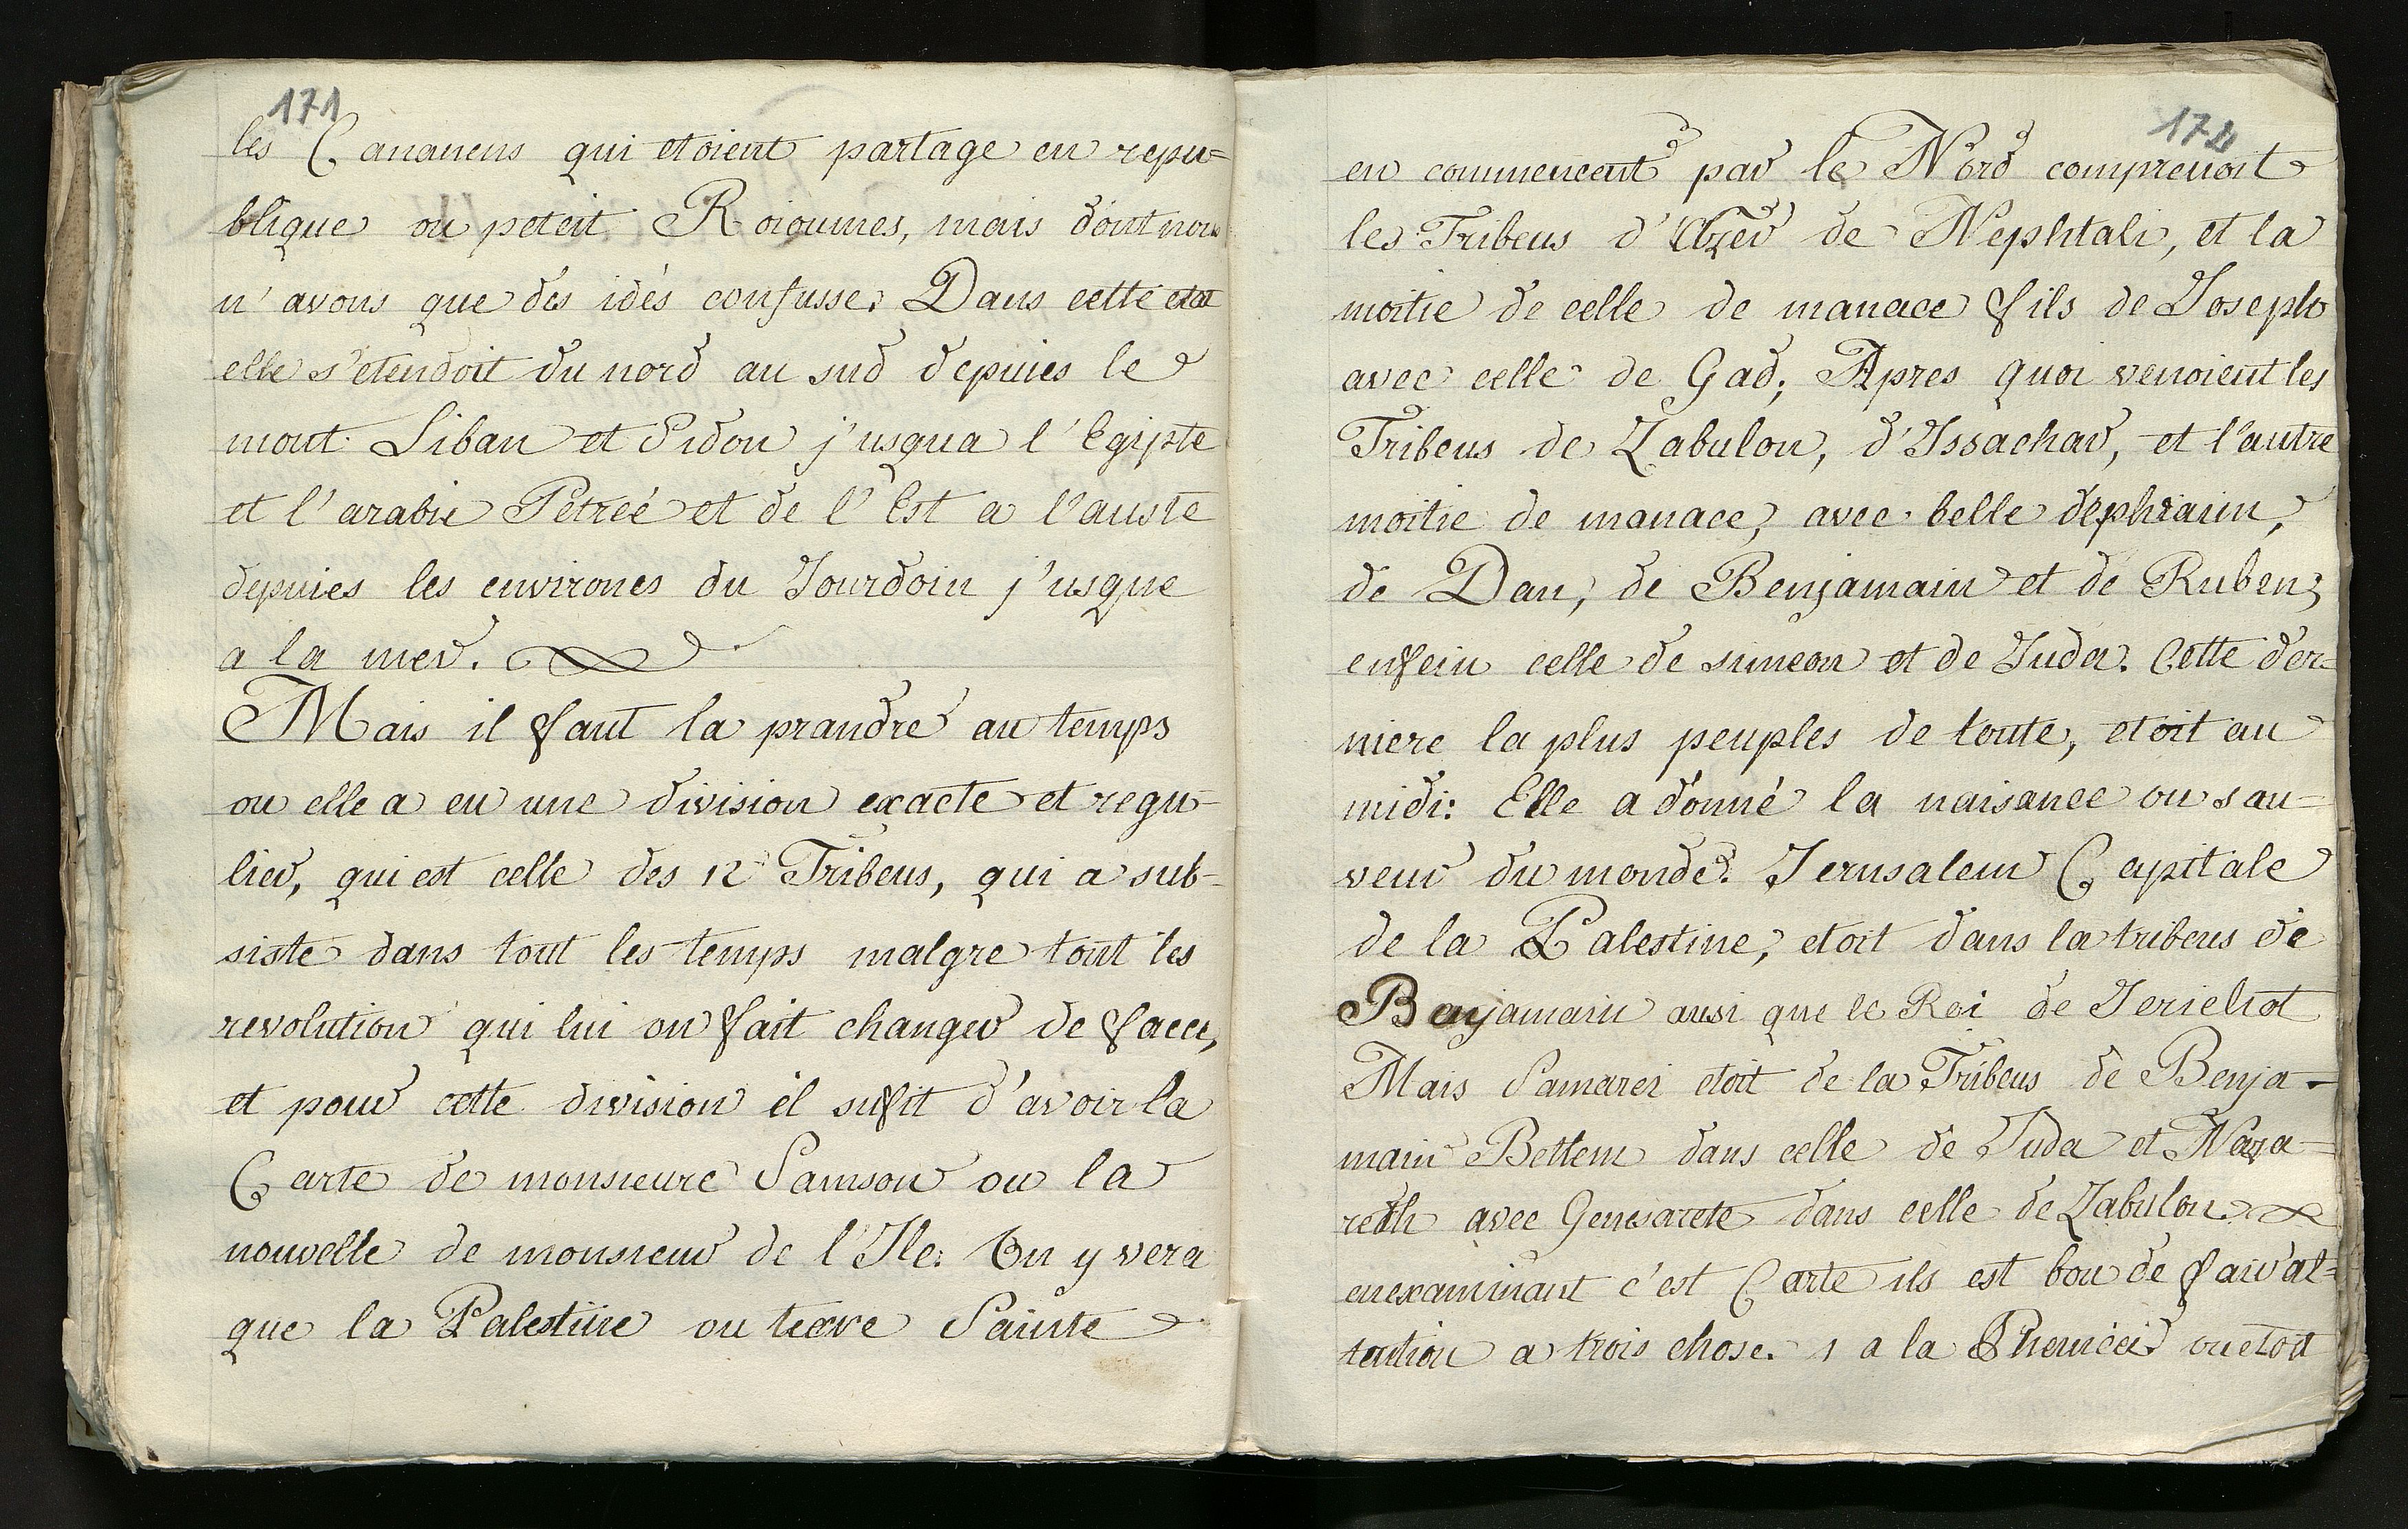 171
les Cananens qui etoient partage en repu=
blique ou peteit Roioumes, mais dont nous
n'avons que des idés confusse. Dans cette etat
elle s'etendoit du nord au sud depuies le
mont Liban et Sidon j'usqua l'Egipte
et l'arabie Petreé et de l'Est a l'auste
depuies les environes du Jourdoin j'usque
a la mer.
Mais il faut la prandre au temps
ou elle a eu une division exacte et regu-
lier, qui est celle des 12 Tribeus, qui a sub-
siste dans tout les temps malgre tout les
revolution qui lui on fait changer de facce,
et pour cette division il sufit d'avoir la
Carte de monsieure Samson ou la
nouvelle de monsieur de l'Ile. On y vera
que la Palestine ou terre Sainte
172
en commencent par le Nord comprenoit
les Tribeus d'Azer de Nephtali, et la
moitie de celle de manace fils de Joseph
avec celle de Gad; Apres quoi venoient les
Tribeus de Zabulon, d'Issachar, et l'autre
moitie de manace, avec belle déphraim,
de Dan, de Benjamain et de Ruben;
enfein celle de simeon et de Juda. Cette der=
niere la plus peuples de toute, etoit au
midi: Elle a donné la naisance ou sau=
veur du monde. Jerusalem Capitale
de la Palestine, etoit dans la tribeus de
Benjamain ausi que le Roi de Jerichot
Mais Samarei etoit de la Tribeus de Benja-
main Bettem dans celle de Juda et Naza=
reth avec Genesarete dans celle de Zabulon.
enexaminant c'est Carte ils est bon de fair at=
tention a trois chose. 1 a la Pheniceir ou etoit